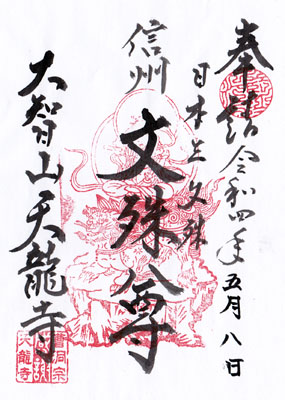 奉詣
令和四年
五月八日
日本三文殊
信州
文殊尊
大智山天龍寺
曹洞宗
天龍寺